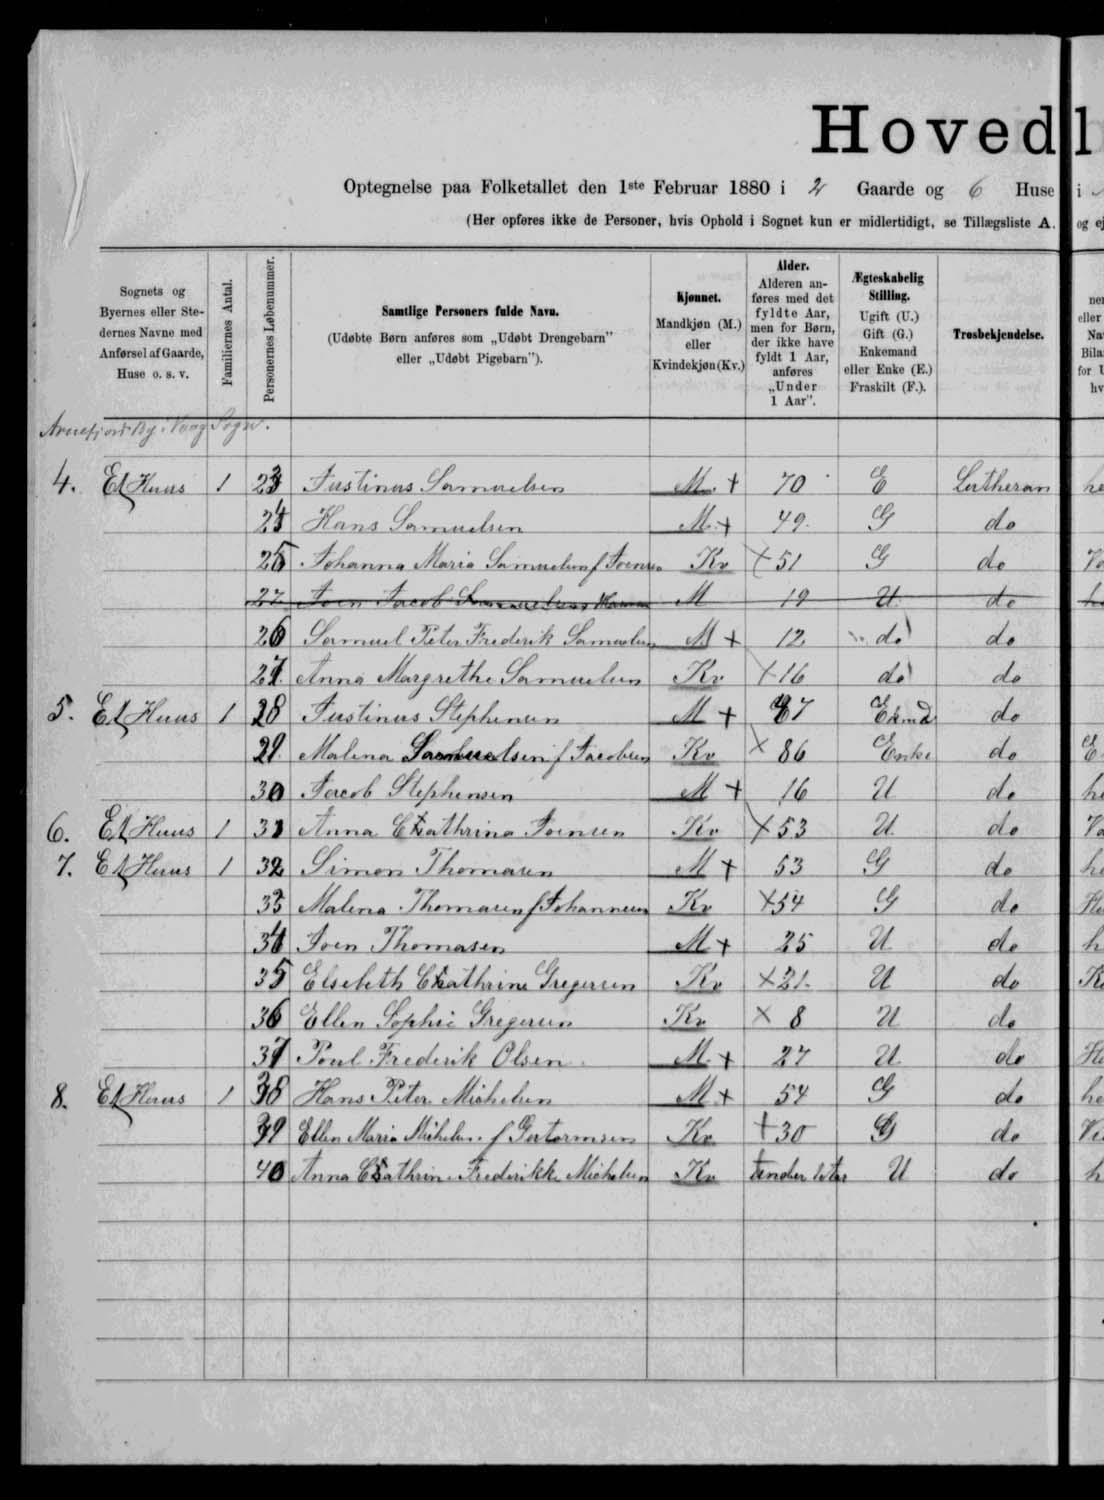 Hovedl
Optegnelse paa Folketallet den 1ste Februar 1880 i 2 Gaarde og 6 Huse i
(Her opføres ikke de Personer, hvis Ophold i Sognet kun er midlertidigt, se Tillægsliste A. og ej
Sognets og Byernes eller Stedernes Navne med Anførsel af Gaarde, Huse o. s. v.
Familiernes Antal.
Personernes Løbenummer.
Samtlige Personers fulde Navn.
(Udøbte Børn anføres som „Udøbt Drengebarn" eller „Udøbt Pigebarn").
Kjønnet.
Mandkjøn (M.) eller Kvindekjøn (Kv.)
Alder.
Alderen anføres med det fyldte Aar, men for Børn, der ikke have fyldt 1 Aar, anføres „Under 1 Aar".
Ægteskabelig Stilling.
Ugift (U.) Gift (G.) Enkemand eller Enke (E.) Fraskilt (F.).
Trosbekjendelse.
Arnefjord By i Vaag Sogn.
4. Et Huus 1 23 Justinus Samuelsen M. + 70 E Lutheran
24 Hans Samuelsen M. + 49. G do
25 Johanna Maria Samuelsen f Joensen Kv + 51 G do
27 Joen Jacob Samuelsen M 19 U do
26 Samuel Peter Frederik Samuelsen M + 12 do do
27. Anna Margrethe Samuelsen Kv + 16 do do
5. Et Huus 1 28 Justinus Stephensen M + 67 Ekmd do
29. Malena Samuelsen f Jacobsen Kv × 86 Enke do
30 Jacob Stephensen M + 16 U do
6. Et Huus 1 31 Anna Cathrina Joensen Kv + 53 U do
7. Et Huus 1 32 Simon Thomasen M + 53 G do
33 Malena Thomasen f Johannesen Kv + 54 G do
34 Joen Thomasen M + 25 U do
35 Elsebeth Cathrine Gregersen Kv × 21. U do
36 Ellen Sophie Gregersen Kv × 8 U do
37 Poul Frederik Olsen M. + 27 U do
8. Et Huus 1 38 Hans Peter Michelsen M + 54 G do
39 Ellen Maria Michelsen f Guttormsen Kv + 30 G do
40 Anna Cathrine Frederikke Michelsen Kv under 1 Aar U do